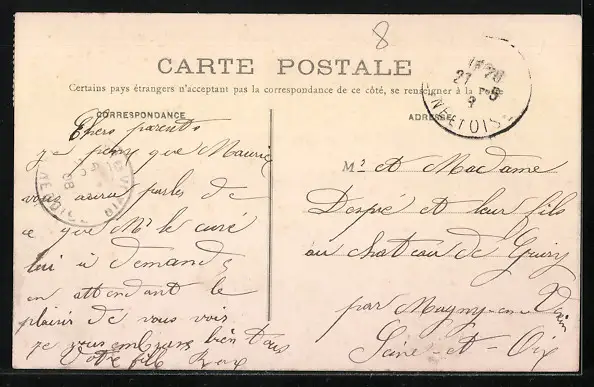 8
CARTE POSTALE
Certains pays étrangers n'acceptant pas la correspondance de ce côté, se renseigner à la Poste
CORRESPONDANCE
Chers parents
je pense que Maurice
vous aura parles de
ce que Mr le curé
lui a demandé
en attendant le
plaisir de vous voir
je vous embrasse bien tous
Votre fils
ADRESSE
Mr et Madame
Despré et leur fils
au chateau de Guiry
par Magny-en-Vexin
Seine-et-Oise
21 5